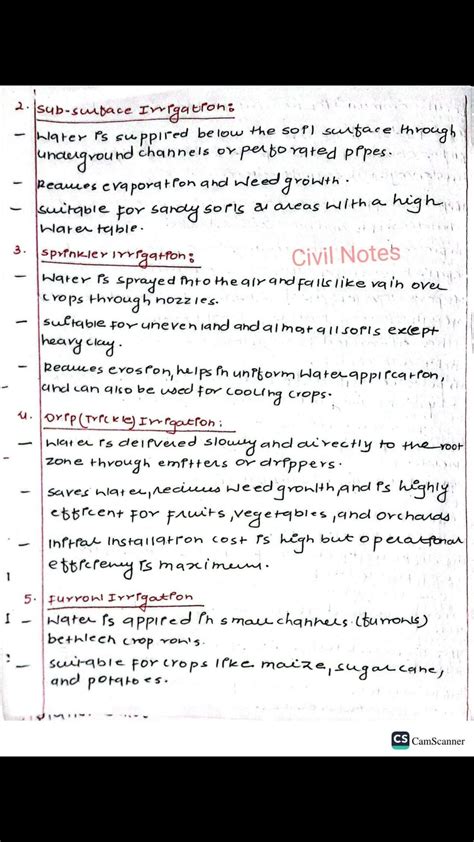 2. Sub-surface Irrigation:
- Water is supplied below the soil surface through
underground channels or perforated pipes.
- Reduces evaporation and weed growth.
- suitable for sandy soils & areas with a high
water table.
3. Sprinkler irrigation:
Civil Notes
- Water is sprayed into the air and falls like rain over
crops through nozzles.
- suitable for uneven land and almost all soils except
heavy clay.
- Reduces erosion, helps in uniform water application,
and can also be used for cooling crops.
4. Drip (Trickle) Irrigation:
- Water is delivered slowly and directly to the root
zone through emitters or drippers.
- Saves water, reduces weed growth, and is highly
efficient for fruits, vegetables, and orchards
- Initial installation cost is high but operational
efficiency is maximum.
5. Furrow Irrigation
- Water is applied in small channels (furrows)
between crop rows.
- suitable for crops like maize, sugarcane,
and potatoes.
CS CamScanner